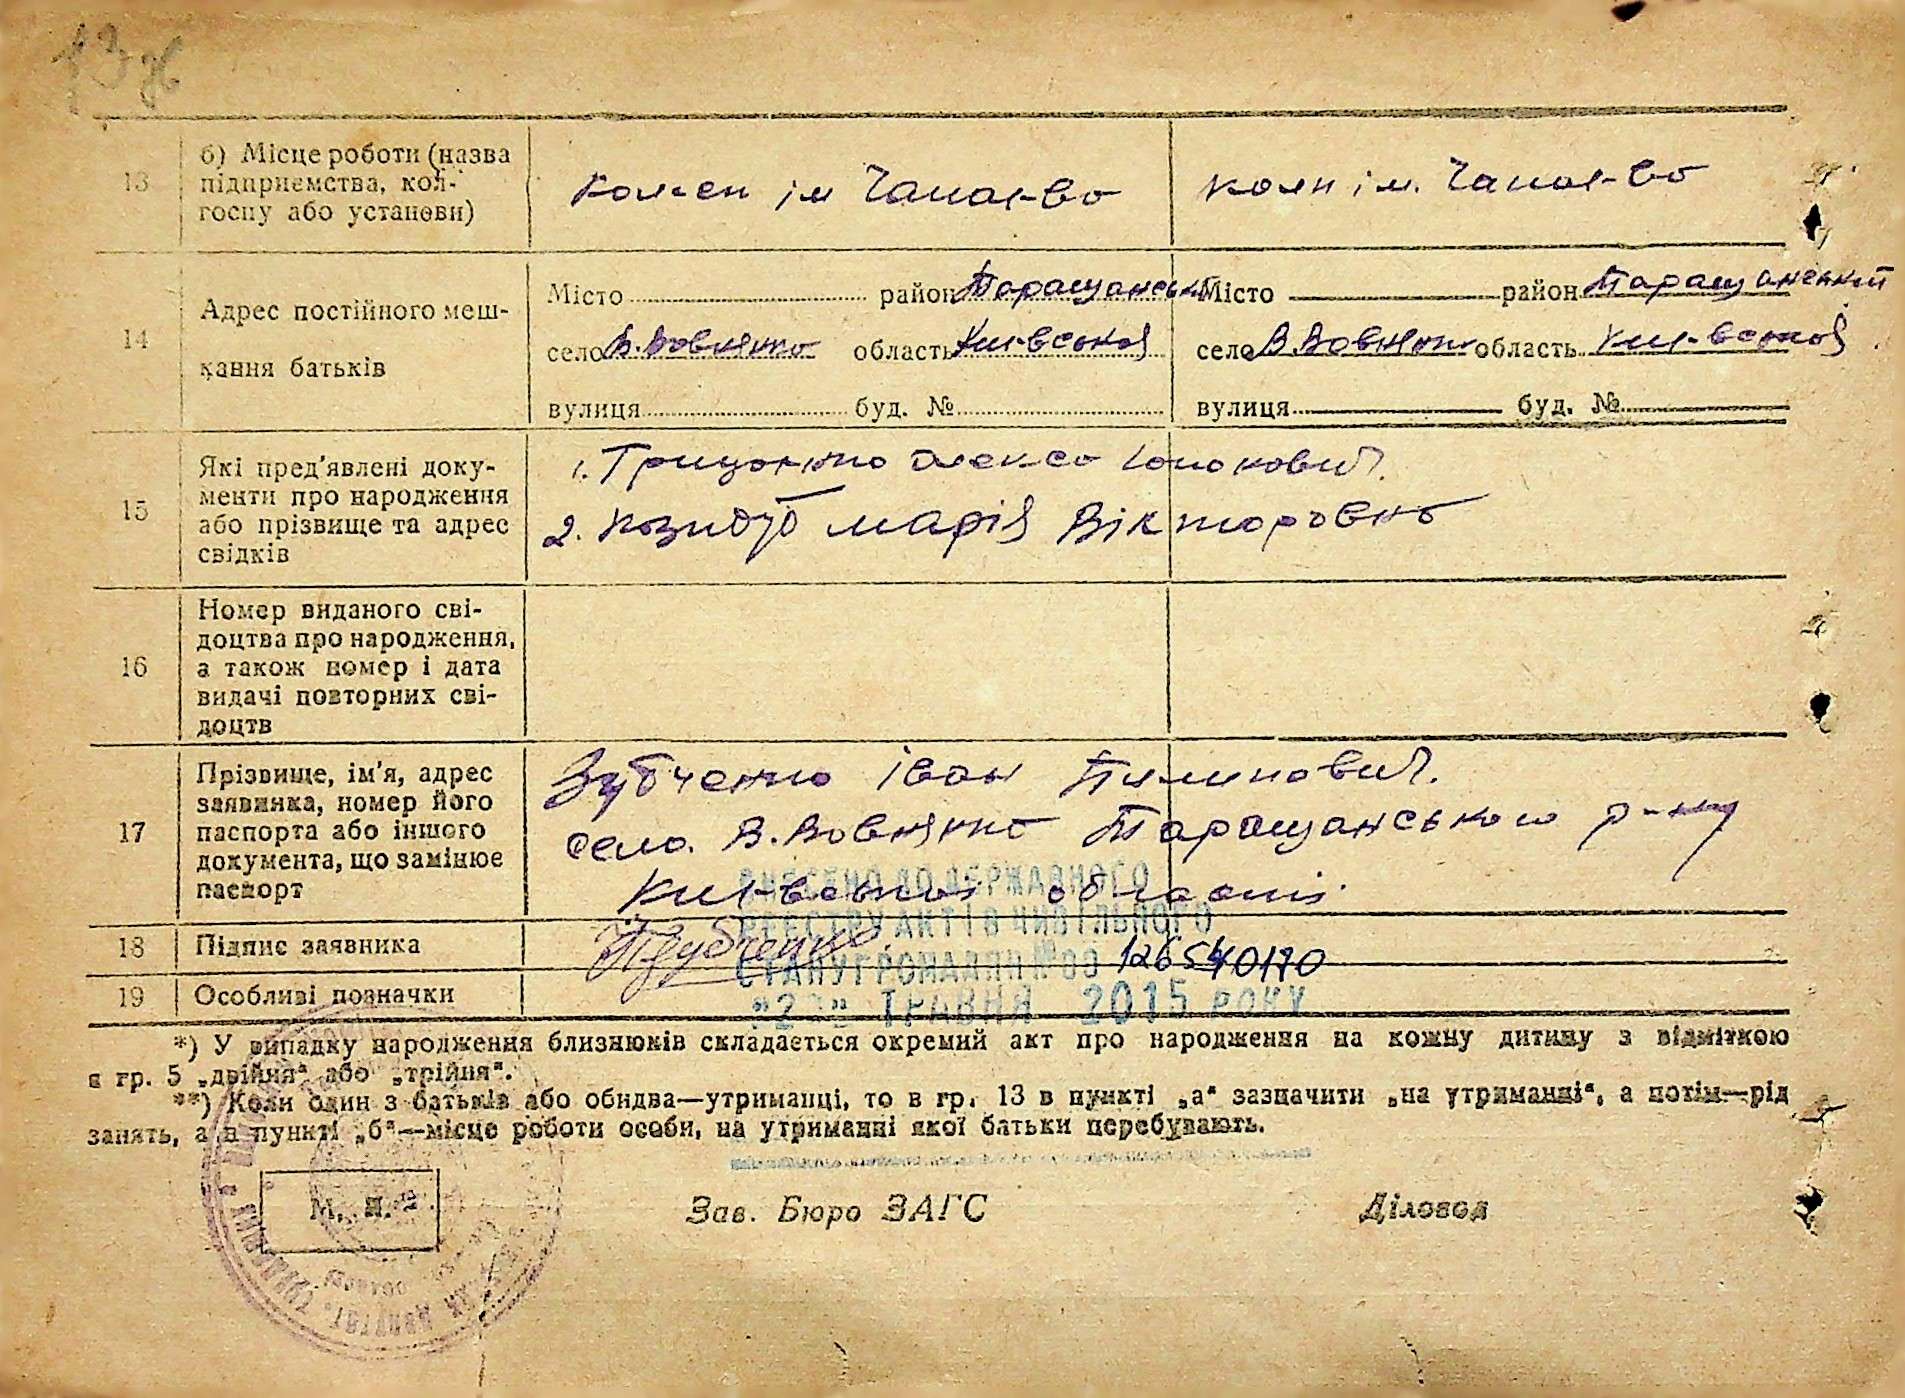 13
б) Місце роботи (назва
підприємства, кол-
госпу або установи)
ім Чапаєва
ім. Чапаєва
14
Адрес постійного меш-
кання батьків
Місто район Таращанськ
село В. Вовнянка область Київської
вулиця буд. №
Місто район Таращанський
село В. Вовнянка область Київської
вулиця буд. №
15
Які пред'явлені доку-
менти про народження
або прізвище та адрес
свідків
1. Олекса
2. Марія Вікторовна
16
Номер виданого сві-
доцтва про народження,
а також номер і дата
видачі повторних сві-
доцтв
17
Прізвище, ім'я, адрес
заявника, номер його
паспорта або іншого
документа, що замінює
паспорт
Зубченко Іван Пилипович.
село. В. Вовнянка Таращанського р-ну
Київської області.
ВНЕСЕНО ДО ДЕРЖАВНОГО
РЕЄСТРУ АКТІВ ЦИВІЛЬНОГО
СТАНУ ГРОМАДЯН № 00 126540170
ТРАВНЯ 2015 РОКУ
18
Підпис заявника
19
Особливі позначки
*) У випадку народження близнюків складається окремий акт про народження на кожну дитину з відміткою
в гр. 5 „двійня“ або „трійня“.
**) Коли один з батьків або обидва—утриманці, то в гр. 13 в пункті „а“ зазначити „на утриманні“, а потім—рід
занять, а в пункті „б“—місце роботи особи, на утриманні якої батьки перебувають.
М. П.
Зав. Бюро ЗАГС
Діловод